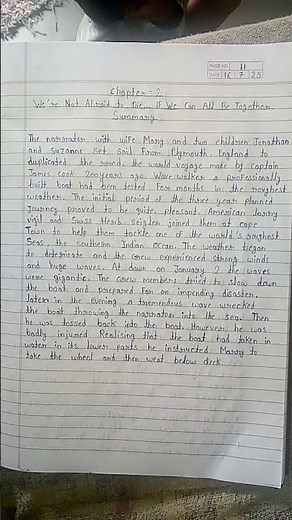 PAGE NO. 11
DATE 16 7 25
Chapter - 2
We're Not Afraid to Die... If We Can All Be Together
Summary
The narrator with wife Mary and two children Jonathan
and Suzanne set sail From Plymouth, England to
duplicated the round, the world voyage made by Captain
James Cook 200 years ago. Wave walker a professionally
built boat had been tested For months in the roughest
weather. The initial period of the three year planned
Journey proved to be quite pleasant. American larry
vigil and Swiss Herb. Seigler joined them at cape
Town to help them tackle one of the world's roughest
Seas, the southern Indian Ocean. The weather began
to deteriorate and the crew experienced strong winds
and huge waves. At dawn on January 2 the waves
were gigantic. The crew members tried to slow down
the boat and prepared For an impending disaster.
later in the evening A tremendous wave wrecked
the boat throwing the narrator into the sea. Then
he was tossed back into the boat. However he was
badly injured Realising that the boat had taken in
water in its lower parts he instructed Marry to
take the wheel and then went below deck.